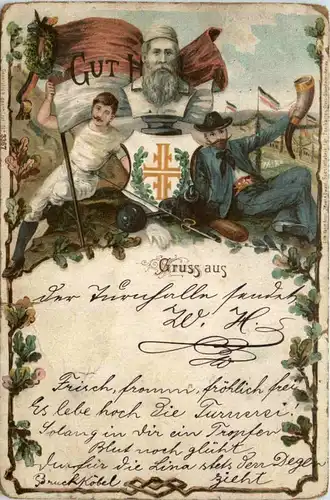 GUT H
Gruss aus
der Turnhalle sendet
W. H.
Frisch, fromm, fröhlich frei
Es lebe hoch die Turnerei.
Solang in dir ein Tropfen
Blut noch glüht
Du für die Lina stets den Degen
zieht
Bruchköbel